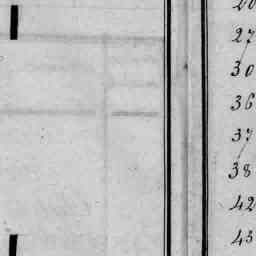 27
30
36
37
38
42
43